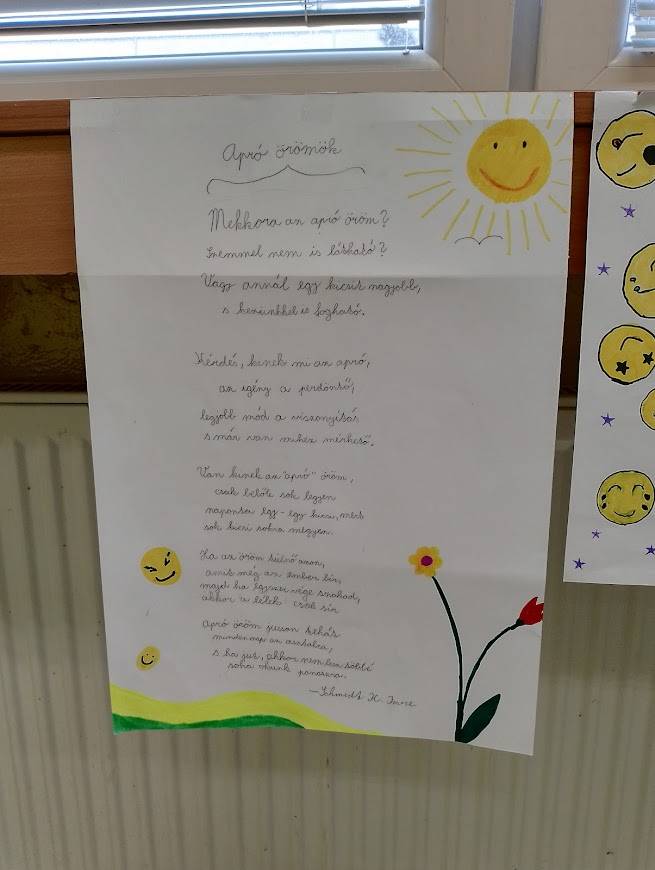 Apró örömök
Mekkora az apró öröm?
Szemmel nem is látható?
Vagy annál egy kicsit nagyobb,
s kezünkkel is fogható.
Kérdés, kinek mi az apró,
az igény a perdöntő,
legjobb mód a viszonyítás
s már van mihez mérhető.
Van kinek az "apró" öröm,
csak belőle sok legyen
naponta egy-egy kicsi, mert
sok kicsi sokra mégyen.
Ha az öröm túlnő azon,
amit még az ember bír,
majd ha egyszer vége szakad,
akkor a lélek csak sír
Apró öröm jusson tehát
mindennap az asztalra,
s ha jut, akkor nem lesz többé
soha okunk panaszra.
-Schmidt K. Imre